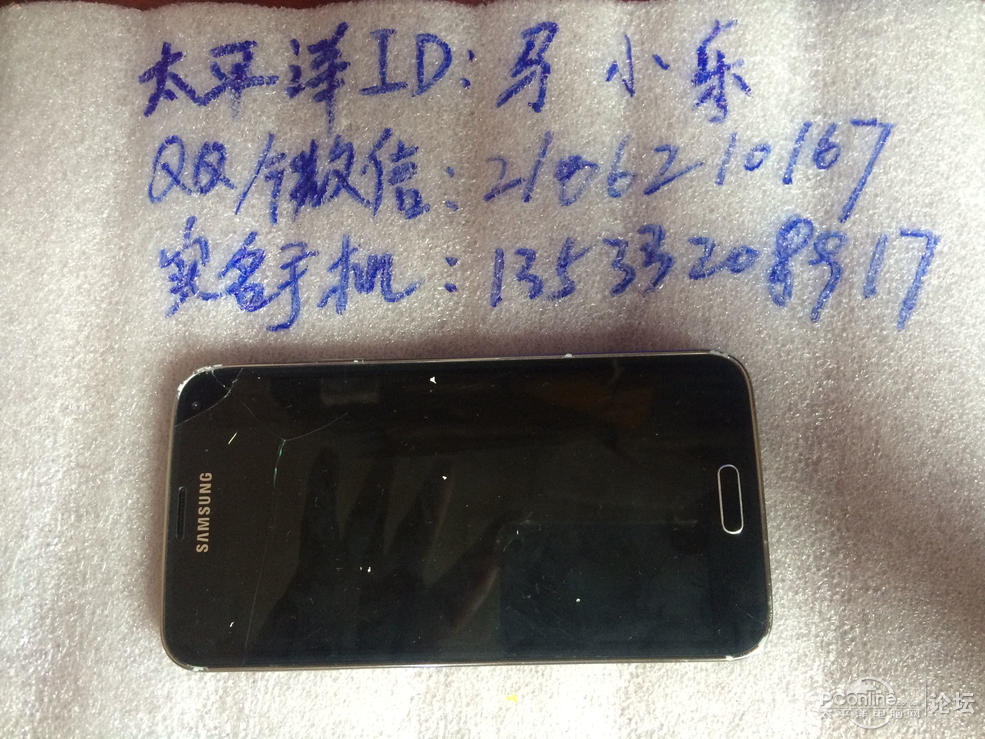 太平洋ID：马小乐
QQ/微信：2106210167
实名手机：13533208917
SAMSUNG
PConline 论坛
太平洋电脑网